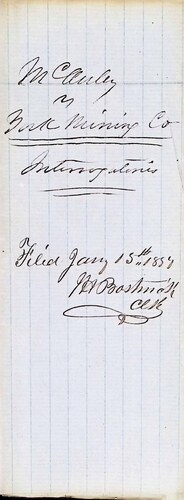 McCauley
v
York Mining Co
Interrogatories
Filed Jany 15th 1857
Clk